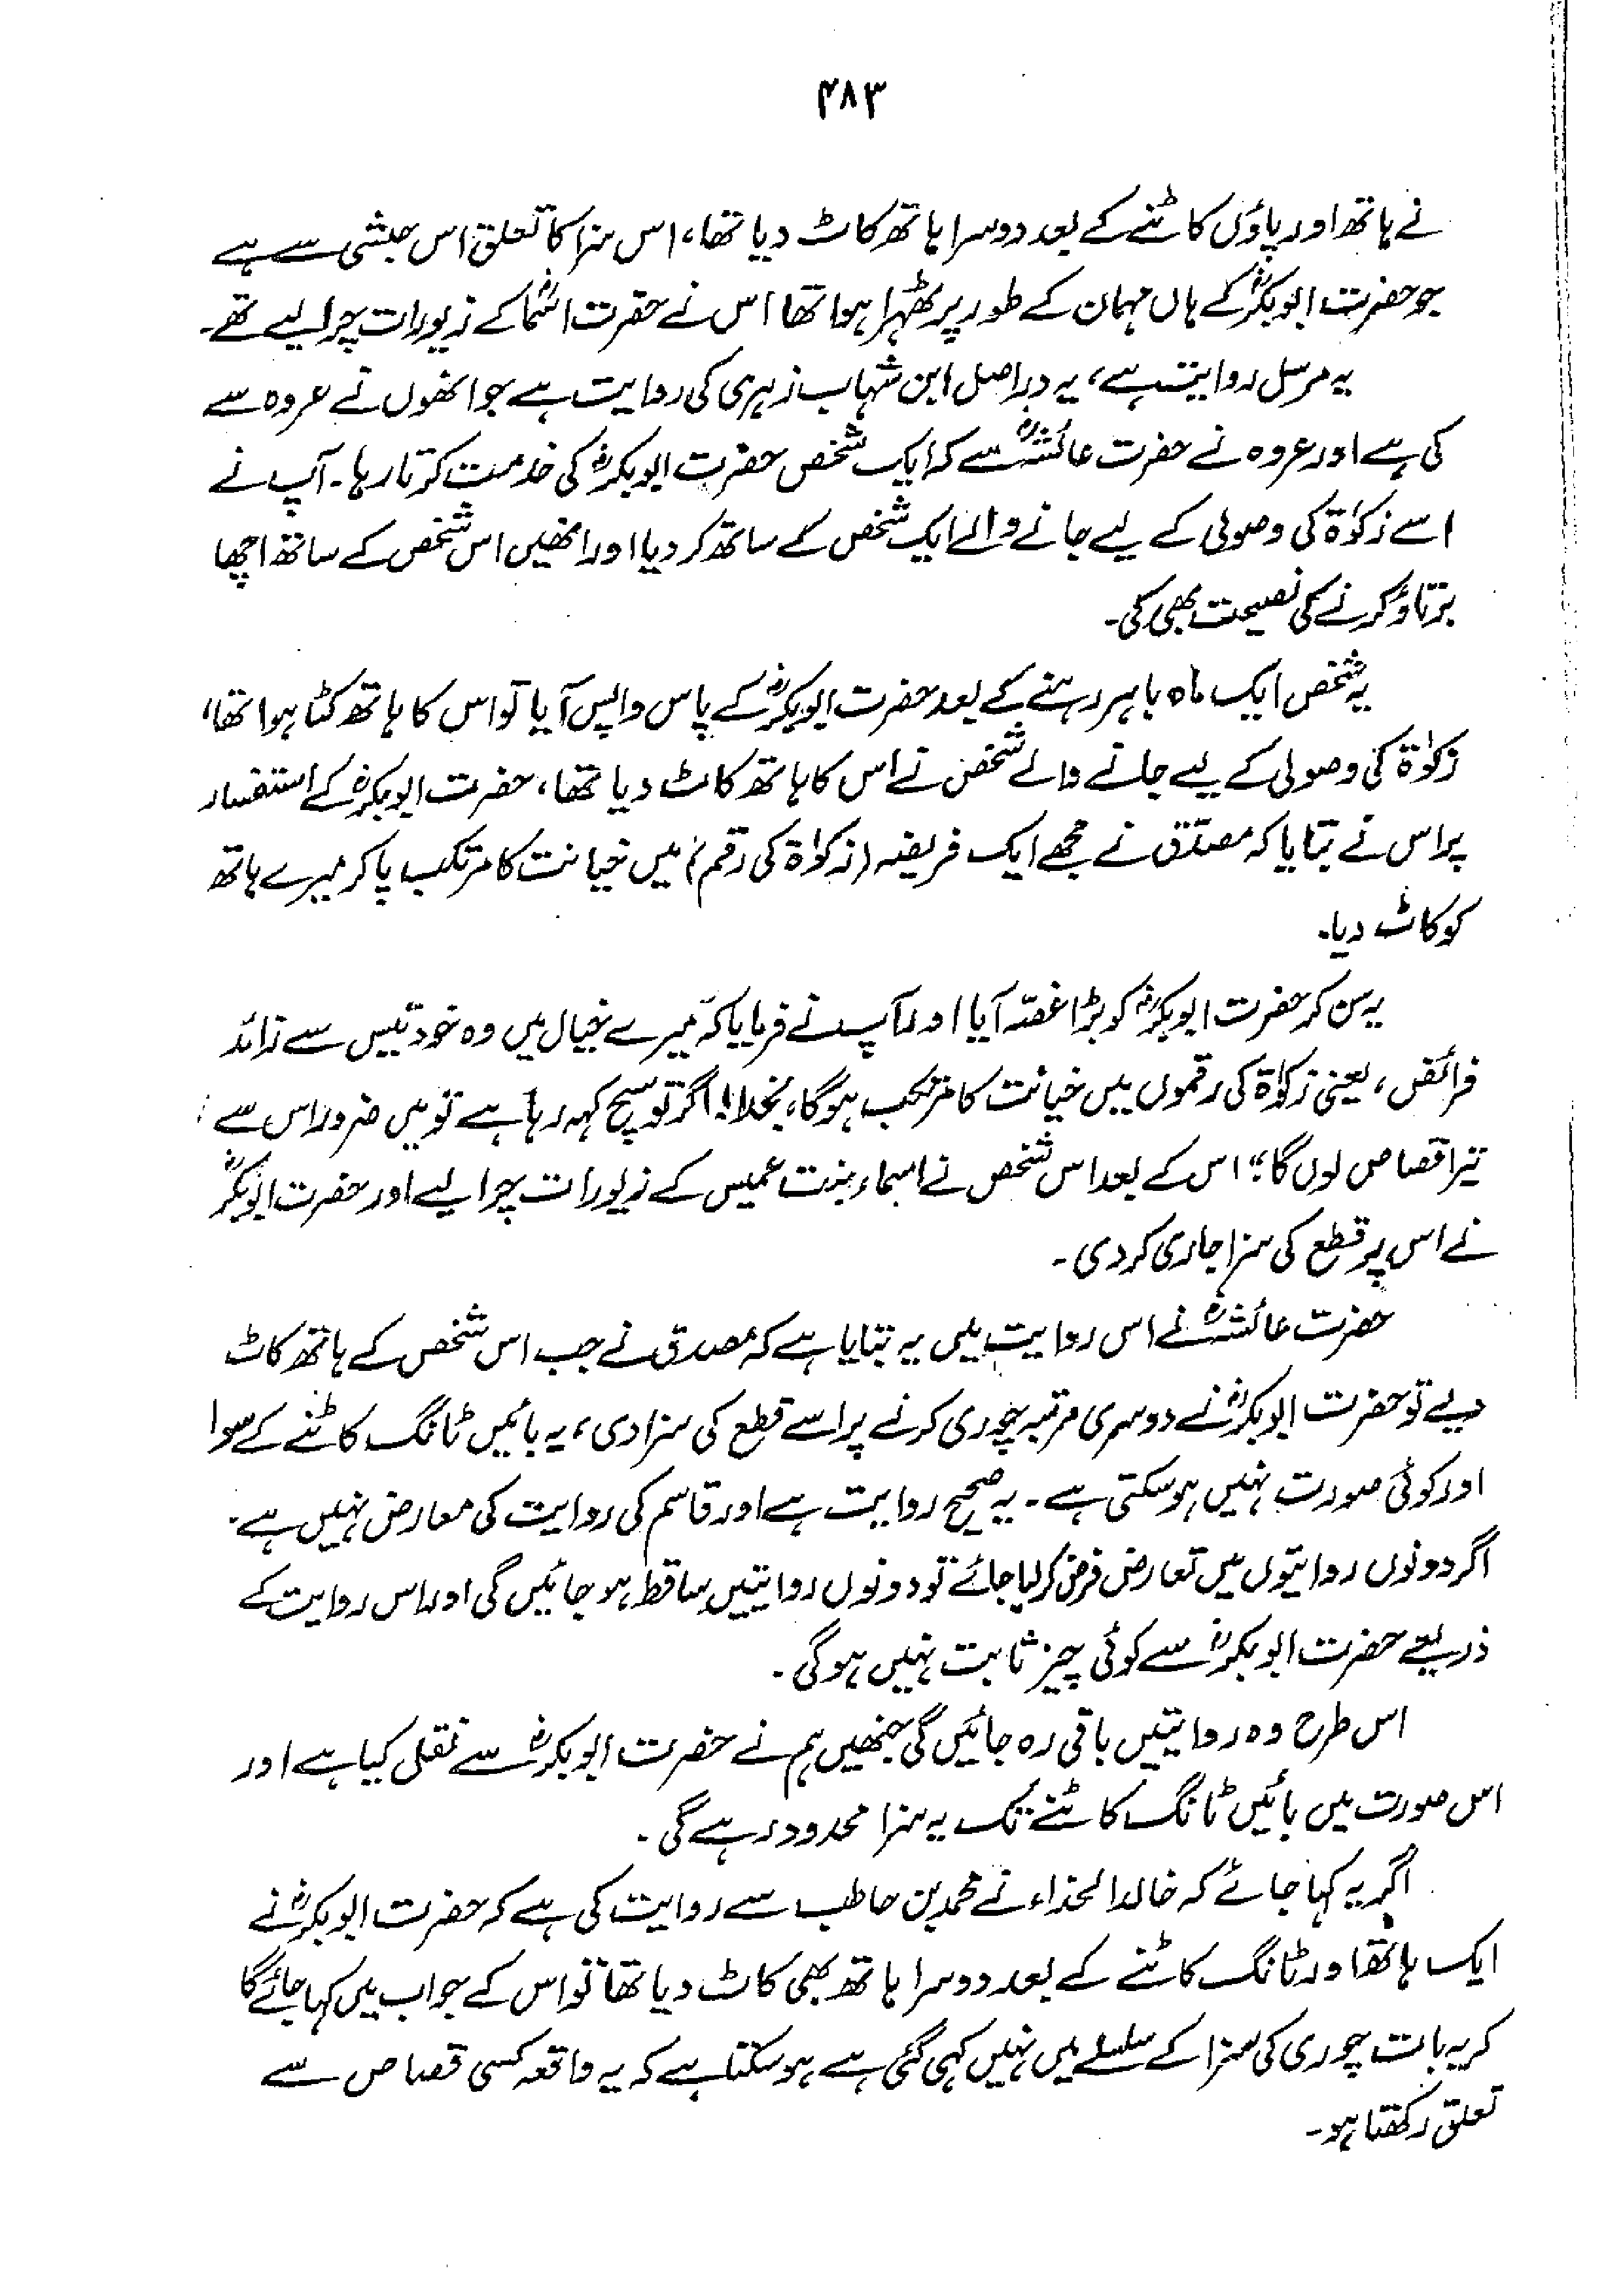 ۴۸۳
نے ہاتھ اور پاؤں کاٹنے کے بعد دوسرا ہاتھ کاٹ دیا تھا، اس سزا کا تعلق اس حبشی سے ہے
جو حضرت ابوبکرؓ کے ہاں مہمان کے طور پر ٹھہرا ہوا تھا اس نے حضرت اسماؓ کے زیورات چرا لیے تھے۔
یہ مرسل روایت ہے، یہ دراصل ابن شہاب زہری کی روایت ہے جو انھوں نے عروہ سے
کی ہے اور عروہ نے حضرت عائشہؓ سے کہ ایک شخص حضرت ابوبکرؓ کی خدمت کرتا رہا۔ آپ نے
اسے زکوٰۃ کی وصولی کے لیے جانے والے ایک شخص کے ساتھ کر دیا اور انھیں اس شخص کے ساتھ اچھا
برتاؤ کرنے کی نصیحت بھی کی۔
یہ شخص ایک ماہ باہر رہنے کے بعد حضرت ابوبکرؓ کے پاس واپس آیا تو اس کا ہاتھ کٹا ہوا تھا،
زکوٰۃ کی وصولی کے لیے جانے والے شخص نے اس کا ہاتھ کاٹ دیا تھا، حضرت ابوبکرؓ کے استفسار
پر اس نے بتایا کہ مصدّق نے مجھے ایک فریضہ (زکوٰۃ کی رقم) میں خیانت کا مرتکب پا کر میرے ہاتھ
کو کاٹ دیا۔
یہ سن کر حضرت ابوبکرؓ کو بڑا غصّہ آیا اور آپ نے فرمایا کہ میرے خیال میں وہ خود تیس سے زائد
فرائض، یعنی زکوٰۃ کی رقموں میں خیانت کا مرتکب ہوگا، بخدا! اگر تو سچ کہہ رہا ہے تو میں ضرور اس سے
تیرا قصاص لوں گا" اس کے بعد اس شخص نے اسماء بنت عمیس کے زیورات چرا لیے اور حضرت ابوبکرؓ
نے اس پر قطع کی سزا جاری کر دی۔
حضرت عائشہؓ نے اس روایت میں یہ بتایا ہے کہ مصدق نے جب اس شخص کے ہاتھ کاٹ
دیے تو حضرت ابوبکرؓ نے دوسری مرتبہ چوری کرنے پر اسے قطع کی سزا دی، یہ بائیں ٹانگ کاٹنے کے سوا
اور کوئی صورت نہیں ہو سکتی ہے۔ یہ صحیح روایت ہے اور قاسم کی روایت کی معارض نہیں ہے۔
اگر دونوں روایتوں میں تعارض فرض کر لیا جائے تو دونوں روایتیں ساقط ہو جائیں گی اور اس روایت کے
ذریعے حضرت ابوبکرؓ سے کوئی چیز ثابت نہیں ہوگی۔
اس طرح وہ روایتیں باقی رہ جائیں گی جنھیں ہم نے حضرت ابوبکرؓ سے نقل کیا ہے اور
اس صورت میں بائیں ٹانگ کاٹنے تک یہ سزا محدود رہے گی۔
اگر یہ کہا جائے کہ خالد الحذاء نے محمد بن حاطب سے روایت کی ہے کہ حضرت ابوبکرؓ نے
ایک ہاتھ اور ٹانگ کاٹنے کے بعد دوسرا ہاتھ بھی کاٹ دیا تھا تو اس کے جواب میں کہا جائے گا
کہ یہ بات چوری کی سزا کے سلسلے میں نہیں کہی گئی ہے ہو سکتا ہے کہ یہ واقعہ کسی قصاص سے
تعلق رکھتا ہو۔